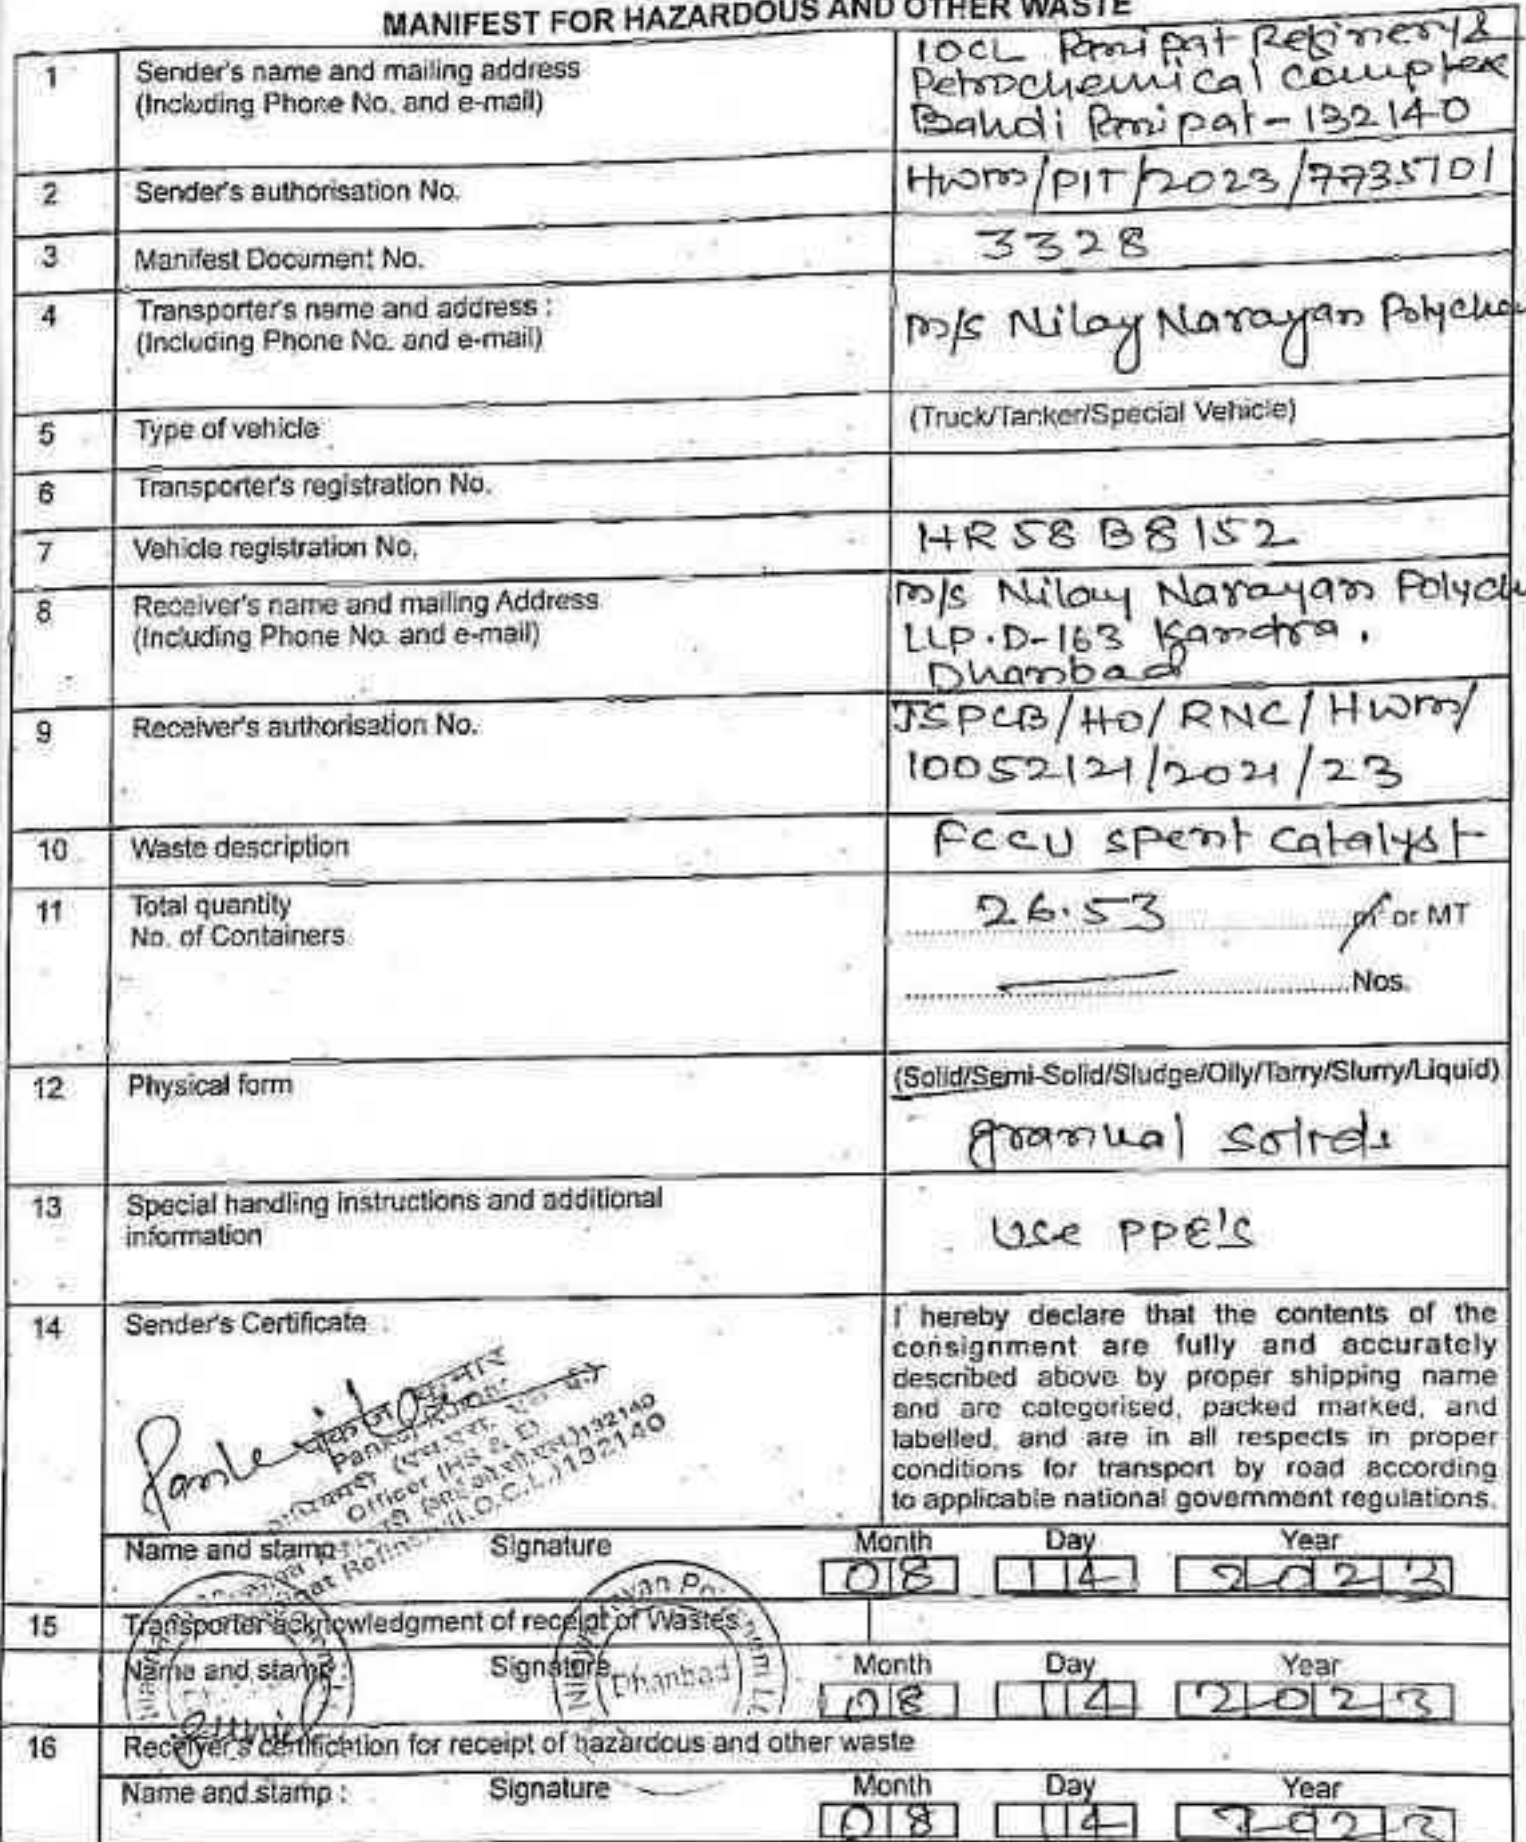 MANIFEST FOR HAZARDOUS AND OTHER WASTE
1 Sender's name and mailing address
(Including Phone No. and e-mail)
IOCL Panipat Refinery &
Petrochemical Complex
Bahdi Panipat - 132140
2 Sender's authorisation No.
HWM/PIT/2023/7735701
3 Manifest Document No.
3328
4 Transporter's name and address :
(Including Phone No. and e-mail)
M/s Nilay Narayan Polyche
5 Type of vehicle
(Truck/Tanker/Special Vehicle)
6 Transporter's registration No.
7 Vehicle registration No.
HR 58 B 8152
8 Receiver's name and mailing Address
(Including Phone No. and e-mail)
M/s Nilay Narayan Polych
LLP. D-163 Kandra.
Dhanbad
9 Receiver's authorisation No.
JSPCB/HO/RNC/HWM/
10052121/2021/23
10 Waste description
FCCU spent catalyst
11 Total quantity
No. of Containers
26.53 m³ or MT
Nos.
12 Physical form
(Solid/Semi-Solid/Sludge/Oily/Tarry/Slurry/Liquid)
granual solids
13 Special handling instructions and additional
information
Use PPE's
14 Sender's Certificate
I hereby declare that the contents of the
consignment are fully and accurately
described above by proper shipping name
and are categorised, packed marked, and
labelled, and are in all respects in proper
conditions for transport by road according
to applicable national government regulations.
पंकज कुमार
Pankaj Kumar
Officer IHS & D
132140
(I.O.C.L.) 132140
Name and stamp : Signature Month Day Year
08 14 2023
15 Transporter acknowledgment of receipt of Wastes
Name and stamp : Signature Month Day Year
Dhanbad
08 14 2023
16 Receiver's certification for receipt of hazardous and other waste
Name and stamp : Signature Month Day Year
08 14 2023